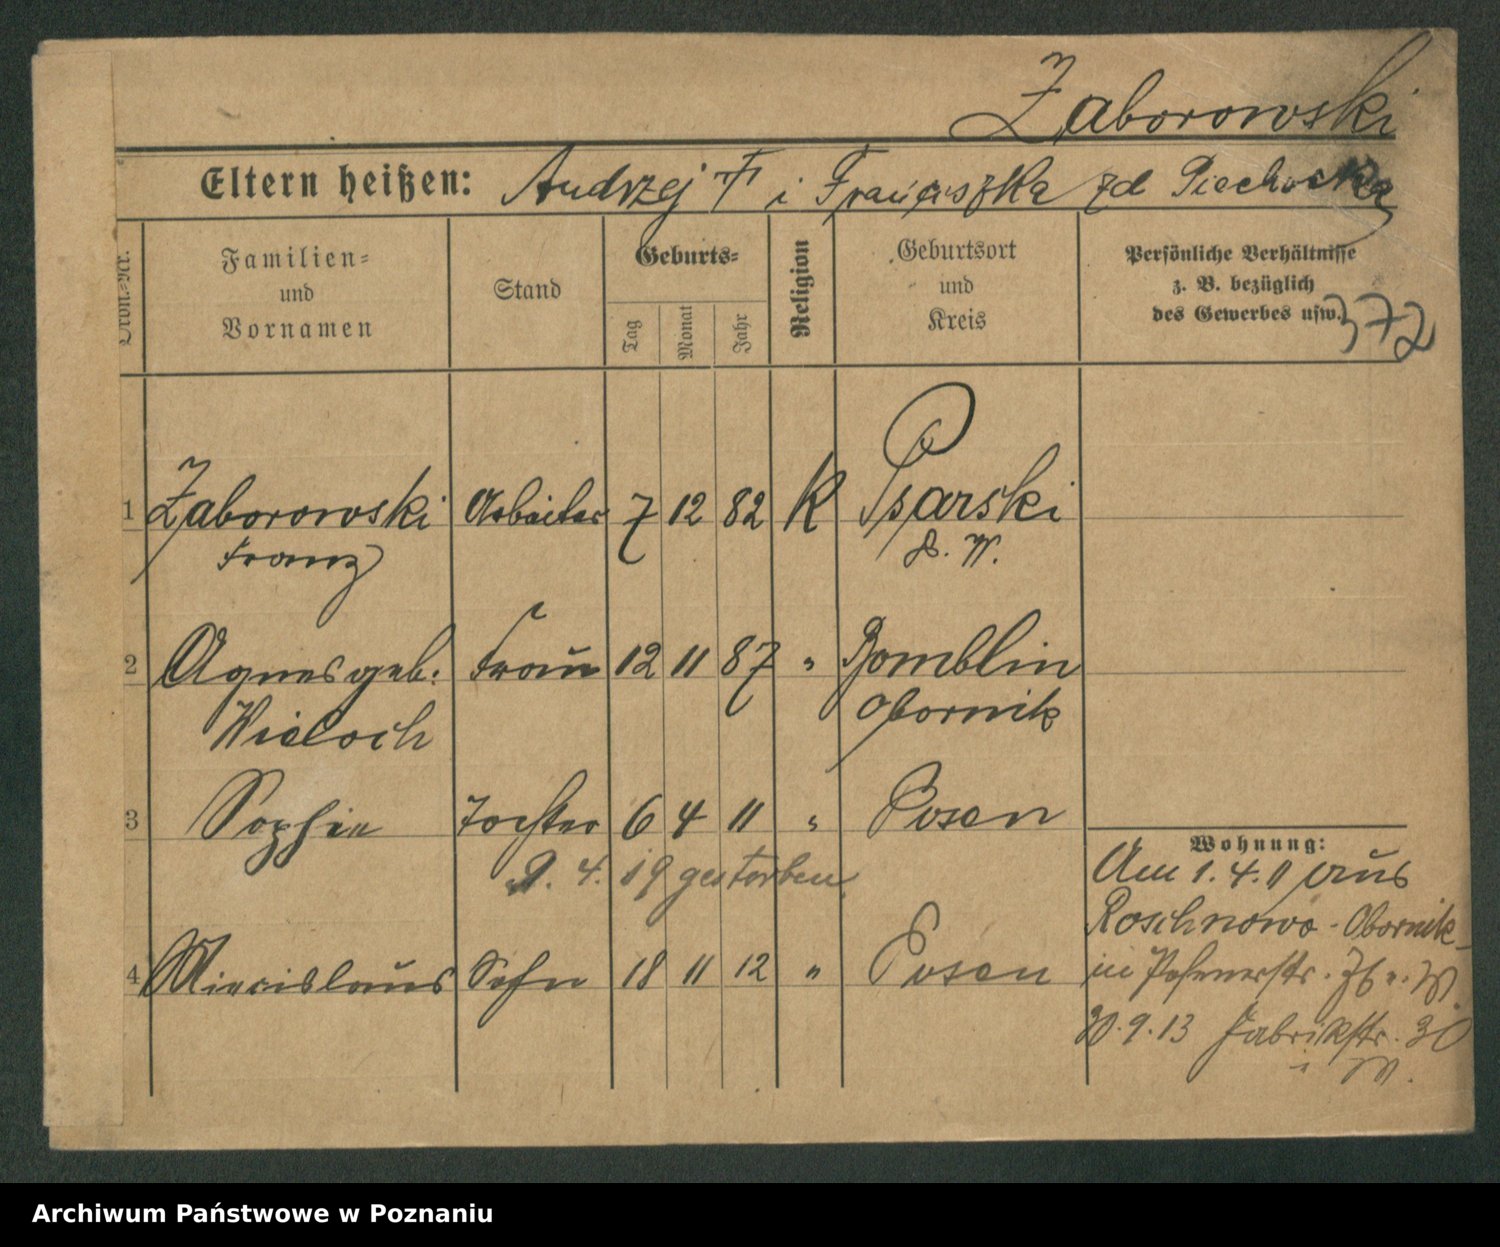 Zaborowski
Eltern heißen: Andrzej i Franciszka zd Piechocka
Ordn.-Nr.
Familien-
und
Vornamen
Stand
Geburts-
Tag
Monat
Jahr
Religion
Geburtsort
und
Kreis
Persönliche Verhältnisse
z. B. bezüglich
des Gewerbes usw.
372
1 Zaborowski Arbeiter 7 12 82 K Psarski
Franz
2 Agnes geb. Frau 12 11 87 " Bomblin
Wieloch Obornik
3 Sophie Tochter 6 4 11 " Posen
4. 19 gestorben
4 Miecislaus Sohn 18 11 12 " Posen
Wohnung:
Am 1. 4. 11 aus
Roschnowo - Obornik
in
30. 9. 13 Fabrikstr. 30